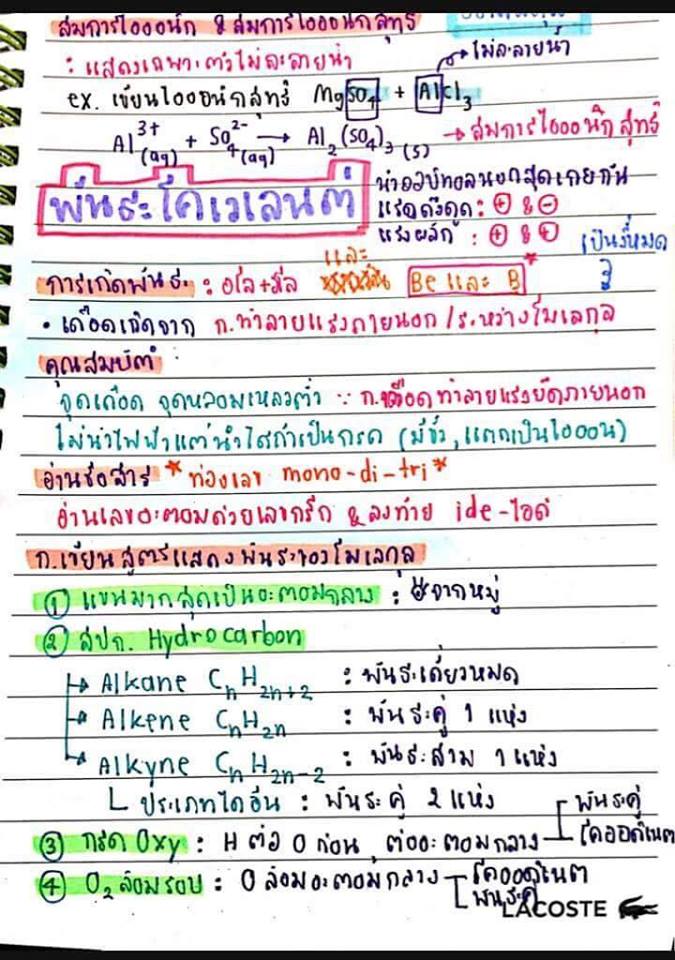 สมการไอออนิก & สมการไอออนิกสุทธิ
: แสดงเฉพาะตัวไม่ละลายน้ำ
→ ไม่ละลายน้ำ
ex. เขียนไอออนิกสุทธิ MgSO4 + AlCl3
Al3+(aq) + SO42-4(aq) → Al2(SO4)3 (s) → สมการไอออนิก สุทธิ
พันธะโคเวเลนต์
นำออบิทอลนอกสุดเกยกัน
แรงดึงดูด : ⊕ & ⊖
แรงผลัก : ⊕ & ⊕
เป็นงี้หมด
การเกิดพันธะ : อโล+อโล และ Be และ B *
• เดือดเกิดจาก ก.ทำลายแรงภายนอก/ระหว่างโมเลกุล
คุณสมบัติ :
จุดเดือด จุดหลอมเหลวต่ำ ∵ ก.เดือดทำลายแรงยึดภายนอก
ไม่นำไฟฟ้าแต่นำได้ถ้าเป็นกรด (มีขั้ว, แตกเป็นไอออน)
อ่านชื่อสาร * ท่องเลข mono-di-tri *
อ่านเลขอะตอมด้วยเลขกรีก & ลงท้าย ide-ไอด์
ก.เขียนสูตรแสดงพันธะของโมเลกุล
① แขนมากสุดเป็นอะตอมกลาง : ดูจากหมู่
② สปก. Hydrocarbon
→ Alkane CnH2n+2 : พันธะเดี่ยวหมด
→ Alkene CnH2n : พันธะคู่ 1 แห่ง
→ Alkyne CnH2n-2 : พันธะสาม 1 แห่ง
└ ประเภทไดอีน : พันธะคู่ 2 แห่ง
③ กรด Oxy : H ต่อ O ก่อน, ต่ออะตอมกลาง พันธะคู่
โคออดิเนต
④ O2 ล้อมรอบ : O ล้อมอะตอมกลาง โคออดิเนต
พันธะคู่
LACOSTE